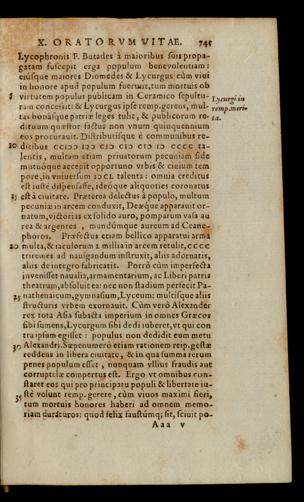 X. ORATORVM VITAE. 745
Lycophronis F. Butades à maioribus suis propa-
gatam suscepit erga populum beneuolentiam:
eiúsque maiores Diomedes & Lycurgus cùm viui
in honore apud populum fuerunt, tum mortuis ob
5 virtutem populus publicam in Ceramico sepultu-
ram concessit: & Lycurgus ipse remp. gerens, mul-
tas bonásque patriæ leges tulit, & publicorum re-
dituum quæstor factus non vnum quinquennium
eos procurauit. Distribuitísque è communibus re-
10 ditibus
talentis, multam etiam priuatorum pecuniam side
mutuóque accepit opportuno vrbis & ciuium tem
pore, in vniuersum talenta: omnia creditus
est iustè dispensasse, ideóque aliquoties coronatus
15 est à ciuitate. Præterea delectus à populo, multum
pecuniæ in arcem conduxit, Deæque apparauit or-
natum, victorias ex solido auro, pomparum vasa au
rea & argentea, mundúmque aureum ad Canë-
phoros. Præfectus etiam bellico apparatui arma
20 multa, & iaculorum millia in arcem retulit, cccc
triremes ad nauigandum instruxit, aliis adornatis,
aliis de integro fabricatis. Porrò cùm imperfecta
inuenisset naualia, armamentarium, ac Liberi patris
theatrum, absoluit ea: nec non stadium perfecit Pa-
25 nathenaicum, gymnasium, Lyceum: multísque aliis
structuris vrbem exornauit. Cùm verò Alexander
rex tota Asia subacta imperium in omnes Græcos
sibi sumens, Lycurgum sibi dedi iuberet, vt qui con
tra ipsum egisset: populus non dedidit eum metu
30 Alexandri. Sæpenumerò etiam rationem reip. gestæ
reddens in libera ciuitate, & in qua summa rerum
penes populum esset, nunquam vllius fraudis aut
corruptelæ compertus est. Ergo vt omnibus con-
staret eos qui pro principatu populi & libertate iu-
35 stè volunt remp. gerere, cùm viuos maximi fieri,
tum mortuis honores haberi ad omnem memo-
riam duraturos: quod felix faustúmq; sit, sciuit po-
Aaa v
Lycurgi in
remp. meri-
ta.